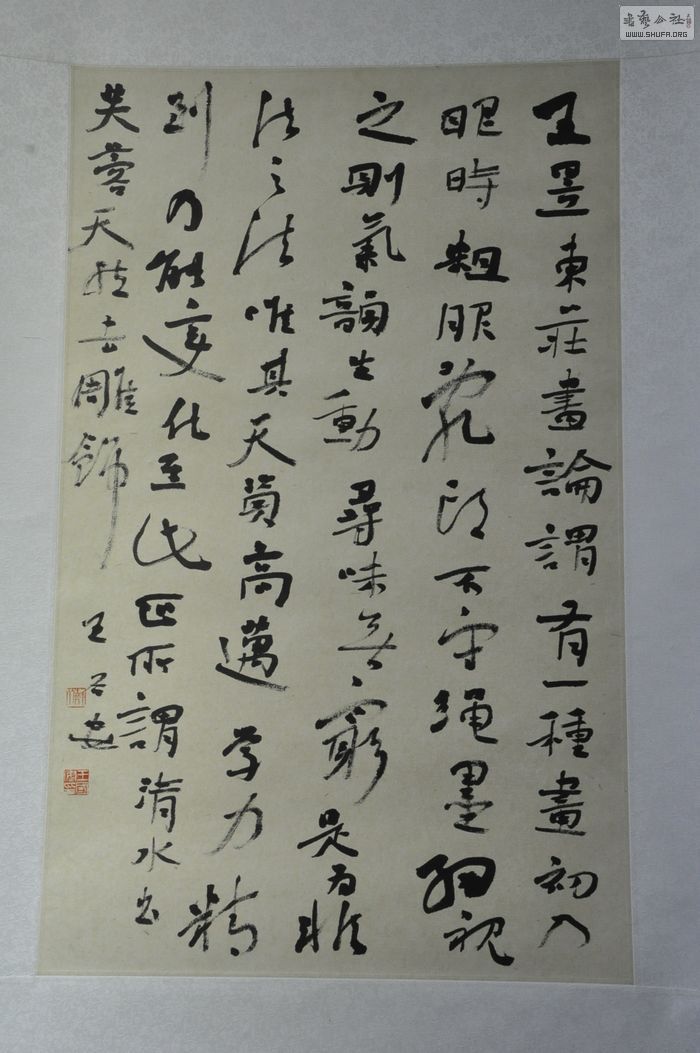 王昱東莊畫論謂有一種畫初入
眼時粗服亂頭不守繩墨細視
之則氣韻生動尋味無窮是為非
法之法唯其天資高邁學力精
到乃能變化至此正所謂清水出
芙蓉天然去雕飾
书艺公社
WWW.SHUFA.ORG